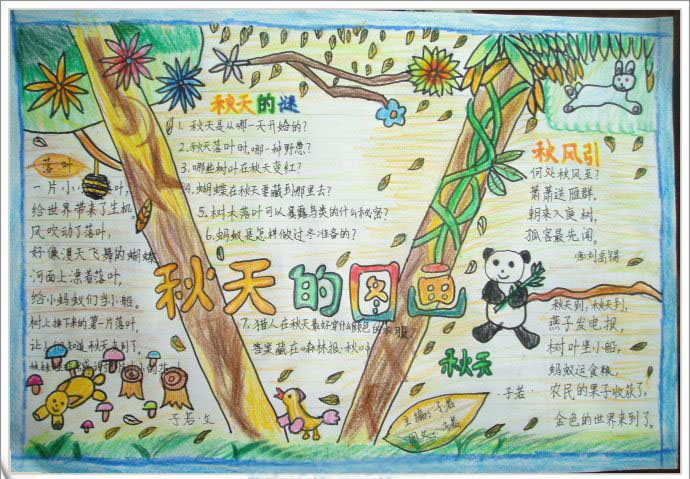 秋天的谜
1. 秋天是从哪一天开始的?
2.秋天落叶时,哪一种野
3.哪些树叶在秋天变红?
4.蝴蝶在秋天要藏到那里去?
5.树木落叶可以暴露鸟类的什么秘密?
6.蚂蚁是怎样做过冬准备的?
7.猎人在秋天最好穿什么颜色的衣服
答案藏在《森林报·秋
落叶
一片小
给世界带来了生机。
风吹动了落叶,
好像漫天飞舞的蝴蝶
河面上漂着落叶,
给小蚂蚁们当小船。
树上掉下来的第一片落叶,
让 知道秋天来到了。
子若 文
秋天的图画
秋风引
何处秋风至?
萧萧送雁群。
朝来入庭树,
孤客最先闻。
刘禹锡
秋天
秋天到,秋天到,
燕子发电报,
树叶堡小船,
蚂蚁运食粮,
农民的果子收获了,
金色的世界来到了。
·子若·
主编:子若
图文:子若